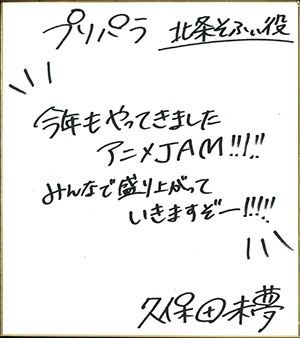 プリパラ 北条そふぃ役
今年もやってきました
アニメJAM!!!!
みんなで盛り上がって
いきますぞー!!!!
久保田未夢